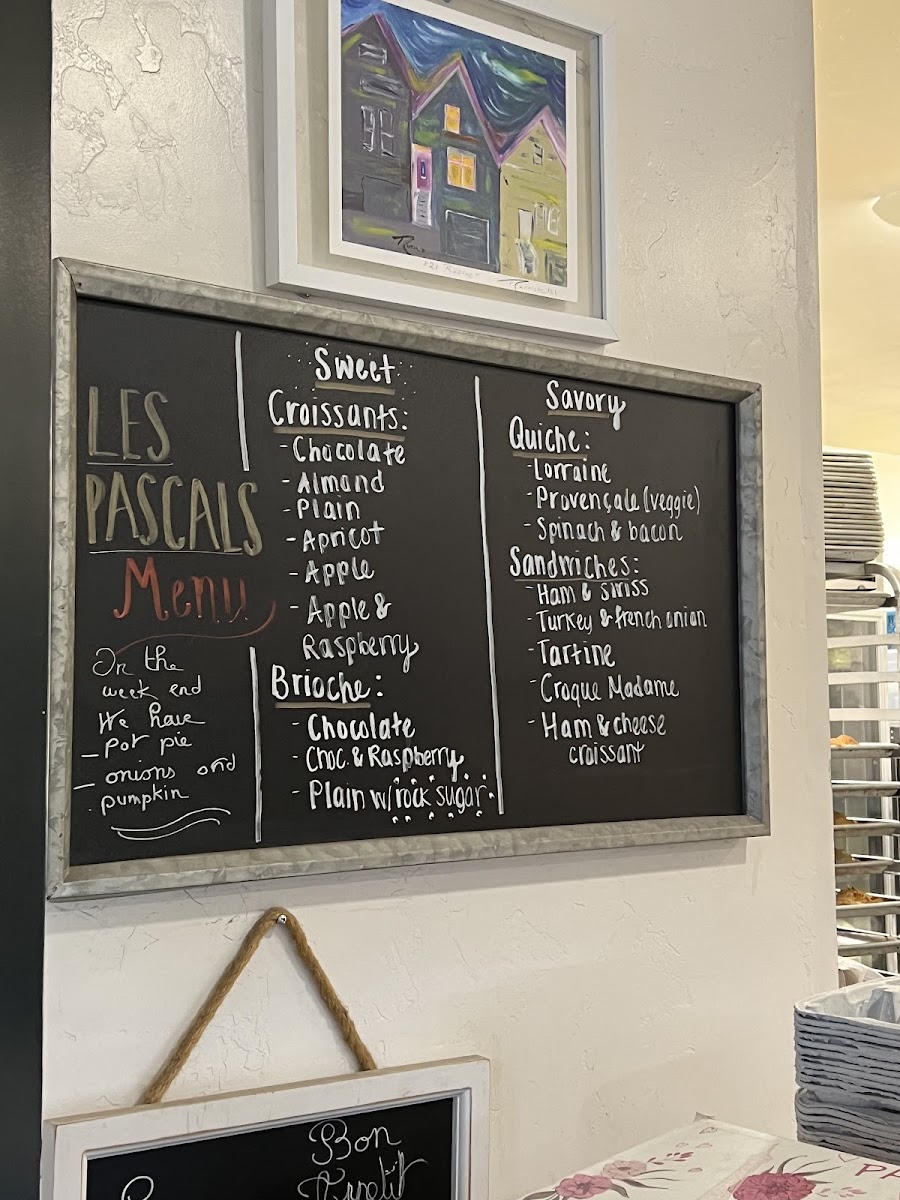 LES
PASCALS
Menu
On the
week end
We have
- Pot pie
- onions and
pumpkin
Sweet
Croissants:
- Chocolate
- Almond
- Plain
- Apricot
- Apple
- Apple &
Raspberry
Brioche:
- Chocolate
- Choc. & Raspberry
- Plain w/rock sugar
Savory
Quiche:
- Lorraine
- Provençale (veggie)
- Spinach & bacon
Sandwiches:
- Ham & swiss
- Turkey & french onion
- Tartine
- Croque Madame
- Ham & cheese
croissant
Bon
Appetit